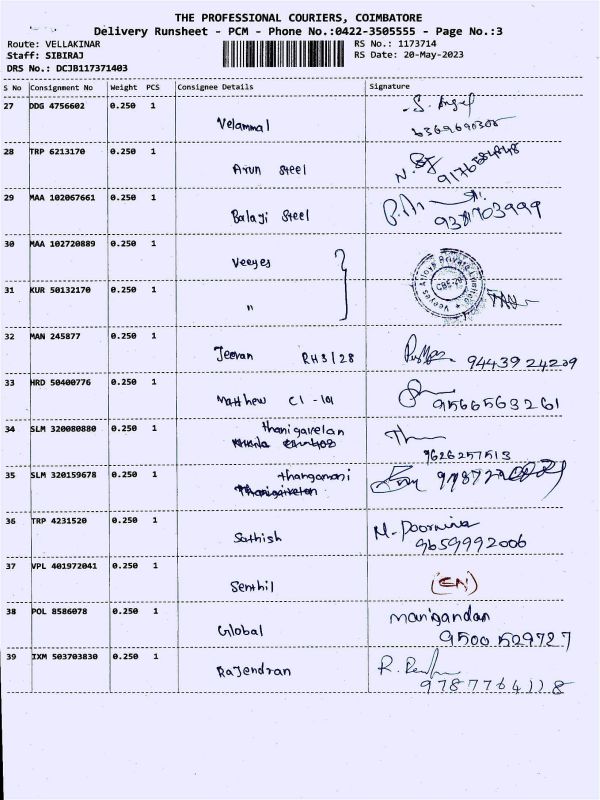 THE PROFESSIONAL COURIERS, COIMBATORE
Delivery Runsheet - PCM - Phone No.:0422-3505555 - Page No.:3
Route: VELLAKINAR
RS No.: 1173714
Staff: SIBIRAJ
RS Date: 20-May-2023
DRS No.: DCJB117371403
S No Consignment No Weight PCS Consignee Details Signature
27 DDG 4756602 0.250 1
Velammal
6369690305
28 TRP 6213170 0.250 1
Arun Steel
29 MAA 102067661 0.250 1
Balaji Steel
30 MAA 102720889 0.250 1
Veeyes
Veeyes Alloys Private Limited
31 KUR 50132170 0.250 1
"
32 MAN 245877 0.250 1
Jeevan RHS/28 94439 24209
33 HRD 50400776 0.250 1
Matthew C1-101 9566563261
34 SLM 320080880 0.250 1
thanigaivelan
9626257513
35 SLM 320159678 0.250 1
thangamani
Thanigaivelan
36 TRP 4231520 0.250 1
Sathish M. Poornima
9659992006
37 VPL 401972041 0.250 1
Senthil
38 POL 8586078 0.250 1
Global Manigandan
9500529727
39 IXM 503703830 0.250 1
Rajendran
9787764118